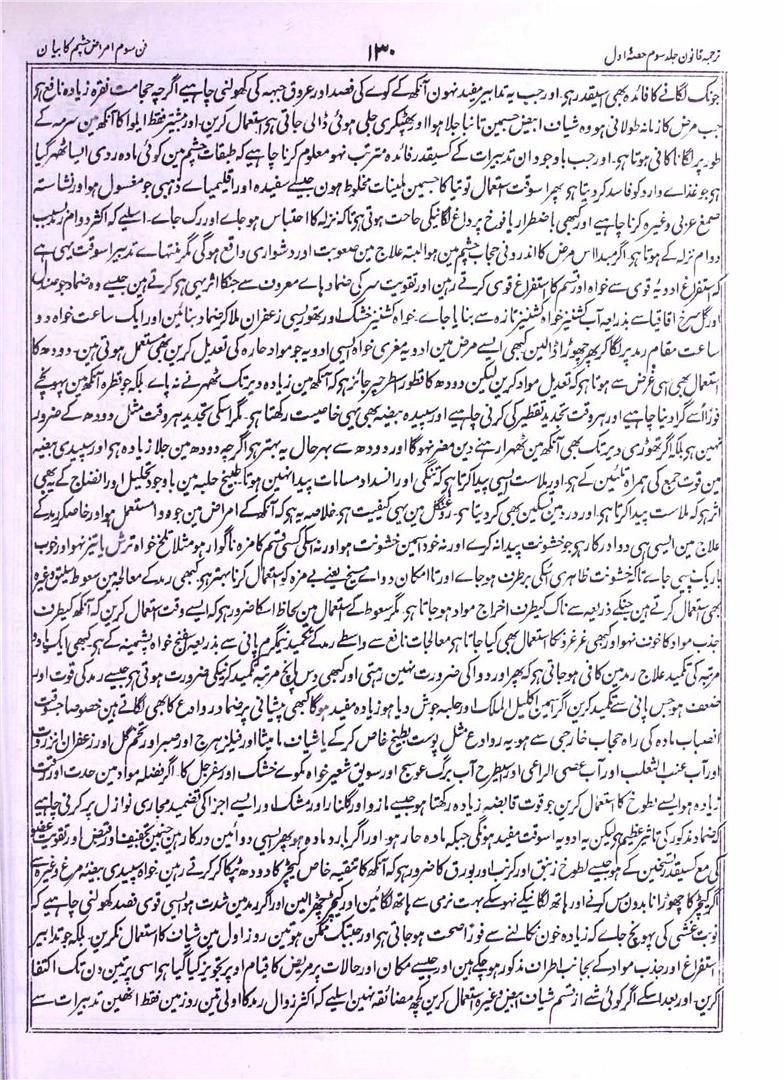 ترجمہ قانون جلد سوم حصۂ اول ۱۳۰ فن سوم امراض چشم کا بیان
جونک لگانے کا فائدہ بھی اسیقدر ہے۔ اور جب یہ تدابیر مفید نہون آنکھ کے کوے کی فصد اور عروق جبہہ کی کھولنی چاہیے اگرچہ حجامت نقرہ زیادہ نافع ہے
جب مرض کا زمانہ طولانی ہو وہ شیاف ابیض جسمین تانبا جلا ہوا اور پھٹکری جلی ہوئی ڈالی جاتی ہے استعمال کرین۔ اور بیشتر فقط ایلوا کا آنکھ مین سرمہ کے
طور پر لگانا کافی ہوتا ہے۔ اور جب باوجود ان تدبیرات کے کسیقدر فائدہ مترتب نہو معلوم کرنا چاہیے کہ طبقات چشم مین کوئی مادہ ردی ایسا ٹھہر گیا
ہے جو غذاے وارد کو فاسد کر دیتا ہے پھر اسوقت استعمال توتیا کا جسمین ملینات مخلوط ہون جیسے سفیدہ اور اقلیمیاے ذہبی جو مغسول ہو اور نشاستہ
صمغ عربی وغیرہ کرنا چاہیے اور کبھی باضطرار یافوخ پر داغ لگانیکی حاجت ہوتی ہے تاکہ نزلہ کا احتباس ہو جاے اور رک جاے۔ اسلیے کہ اکثر دوام رمد بسبب
دوام نزلہ کے ہوتا ہے۔ اگر مبدا اس مرض کا اندرونی حجاب چشم مین ہو البتہ علاج مین صعوبت اور دشواری واقع ہوگی مگر منتہاے تدبیر اسوقت یہی ہے
کہ استفراغ ادویہ قوی سے خواہ اور قسم کا استفراغ قوی کرتے رہین اور تقویت سر کی ضماد ہاے معروف سے جنکا اثر یہی ہے کرتے رہین جیسے وہ ضماد جو صندل
اور گل سرخ اقاقیا سے بذریعہ آب کشنیز خواہ کشنیز تازہ سے بنایا جاے۔ خواہ کشنیز خشک اور تھوڑیسی زعفران ملا کر ضماد بنائین اور ایک ساعت خواہ دو
ساعت مقام رمد پر لگا کر پھر چھوڑا ڈالین کبھی ایسے مرض مین ادویہ مغری خواہ ایسی ادویہ جو مواد حارہ کی تعدیل کرین بھی مستعمل ہوتی ہین۔ دودھ کا
استعمال بھی اسی غرض سے ہوتا ہے کہ تعدیل مواد کرین لیکن دودھ کا قطور اسطرح پر جائز ہے کہ آنکھ مین زیادہ دیر تک ٹھہرنے نہ پاے بلکہ جو قطرہ آنکھ مین پہونچے
فوراً اسے گرا دینا چاہیے اور ہر وقت تجدید تقطیر کی کرنی چاہیے اور سپیدہ بیضہ بھی یہی خاصیت رکھتا ہے۔ مگر اسکی تجدید ہر وقت مثل دودھ کے ضرور
نہین ہے بلکہ اگر تھوڑی دیر تک بھی آنکھ مین ٹھہرا رہنے دین مضر نہوگا اور دودھ سے بہر حال یہ بہتر ہے اگرچہ دودھ مین جلا زیادہ ہے اور سپیدی بیضہ
مین قوت جمع کی ہمراہ تلئین کے ہے۔ اور ملاست ایسی پیدا کرتا ہے کہ تنگی اور انسداد مسامات پیدا نہین ہوتا طبیخ حلبہ مین باوجود تحلیل اور انضاج کے یہ بھی
اثر ہے کہ ملاست پیدا کرتا ہے۔ اور درد مین تسکین بھی کر دیتا ہے۔ روغن گل مین یہی کیفیت ہے۔ خلاصہ یہ ہے کہ آنکھ کے امراض مین جو دوا مستعمل ہو اور خاصکر رمد کے
علاج مین ایسی ہی دوا درکار ہے جو خشونت پیدا نہ کرے اور نہ خود اسمین خشونت ہو اور نہ اسکی کسی قسم کا مزہ ناگوار ہو مثلاً تلخ خواہ ترش یا تیز نہو اور خوب
باریک پیسی جاے تاکہ خشونت ظاہری اسکی برطرف ہو جاے اور تا امکان دواے مسیخ یعنے بے مزہ کو استعمال کرنا بہتر ہے کبھی رمد کے معالجہ مین سعوط سلیق وغیرہ
بھی استعمال کرتے ہین جنکے ذریعہ سے ناک کیطرف اخراج مواد ہو جاتا ہے۔ مگر سعوط کے استعمال مین لحاظ اسکا ضرور ہے کہ ایسے وقت استعمال کرین کہ آنکھ کیطرف
جذب مواد کا خوف نہو اور کبھی غرغرہ کا استعمال بھی کیا جاتا ہے معالجات نافع سے واسطے رمد کے تکمید نیمگرم پانی سے بذریعہ اسفنج خواہ پشمینہ کے ہے کبھی ایک یا دو
مرتبہ کی تکمید علاج رمد مین کافی ہو جاتی ہے کہ پھر اور دوا کی ضرورت نہین رہتی اور کبھی دس پانچ مرتبہ تکمید کرنیکی ضرورت ہوتی ہے جیسے رمد کی قوت اور
ضعف ہو جس پانی سے تکمید کرین اگر اسمین اکلیل الملک اور حلبہ جوش دیا ہو زیادہ مفید ہوگا کبھی پیشانی پر ضماد روادع کا بھی لگاتے ہین خصوصاً جسوقت
انصباب مادہ کی راہ حجاب خارجی سے ہو۔ یہ روادع مثل پوست بطیخ خاص کر کے یا شیاف مامیثا اور فیلزہرج اور صبر اور تخم گل اور زعفران انزروت
اور آب عنب الثعلب اور آب عصی الراعی اور اسیطرح آب برگ عوسج اور سویق شعیر خواہ مکوے خشک اور سفرجل کا۔ اگر فضلہ مواد مین حدت اور رقت
زیادہ ہو ایسے لطوخ کا استعمال کرین جو قوت قابضہ زیادہ رکھتا ہو جیسے مازو اور گلنار اور مشک اور ایسے اجزا کی تضمید مجاری نوازل پر کرنی چاہیے
کہ ضماد مذکور کی تاثیر عظیم ہے لیکن یہ ادویہ اسوقت مفید ہونگی جبکہ مادہ حار ہو۔ اور اگر بارد مادہ ہو پھر ایسی دوائین درکار ہین جنمین تجفیف اور قبض اور تقویت عضو
کی مع کسیقدر تسخین کے ہو جیسے لطوخ زنبق اور کرنب اور بورق کا ضرور ہے کہ آنکھ کا تنقیہ خاص کیچڑ کا دودھ ٹپکا کر کرتے رہین۔ خواہ سپیدی بیضۂ مرغ وغیرہ سے
اگر کیچڑ کا چھوڑانا بدون مس کرنے اور ہاتھ لگانیکے نہوسکے بہت نرمی سے ہاتھ لگائین اور کیچڑ چھوڑالین اور اگر رمد مین شدت ہو ایسی قوی فصد کھولنی چاہیے کہ
نوبت غشی کی پہونچ جاے کہ زیادہ خون نکالنے سے فوراً صحت ہو جاتی ہے اور جبتک ممکن ہو تین روز اول مین شیاف کا استعمال نکرین۔ بلکہ جو تدابیر
استفراغ اور جذب مواد کے بجانب اطراف مذکور ہو چکے ہین اور جیسے مکان اور حالات پر مریض کا قیام اوپر تجویز کیا گیا ہے اسی پر تین دن تک اکتفا
کرین۔ اور بعد اسکے اگر کوئی شے از قسم شیاف ابیض وغیرہ استعمال کرین کچھ مضائقہ نہین اسلیے کہ اکثر زوال رمد کا اولی تین روز مین فقط انھین تدبیرات سے